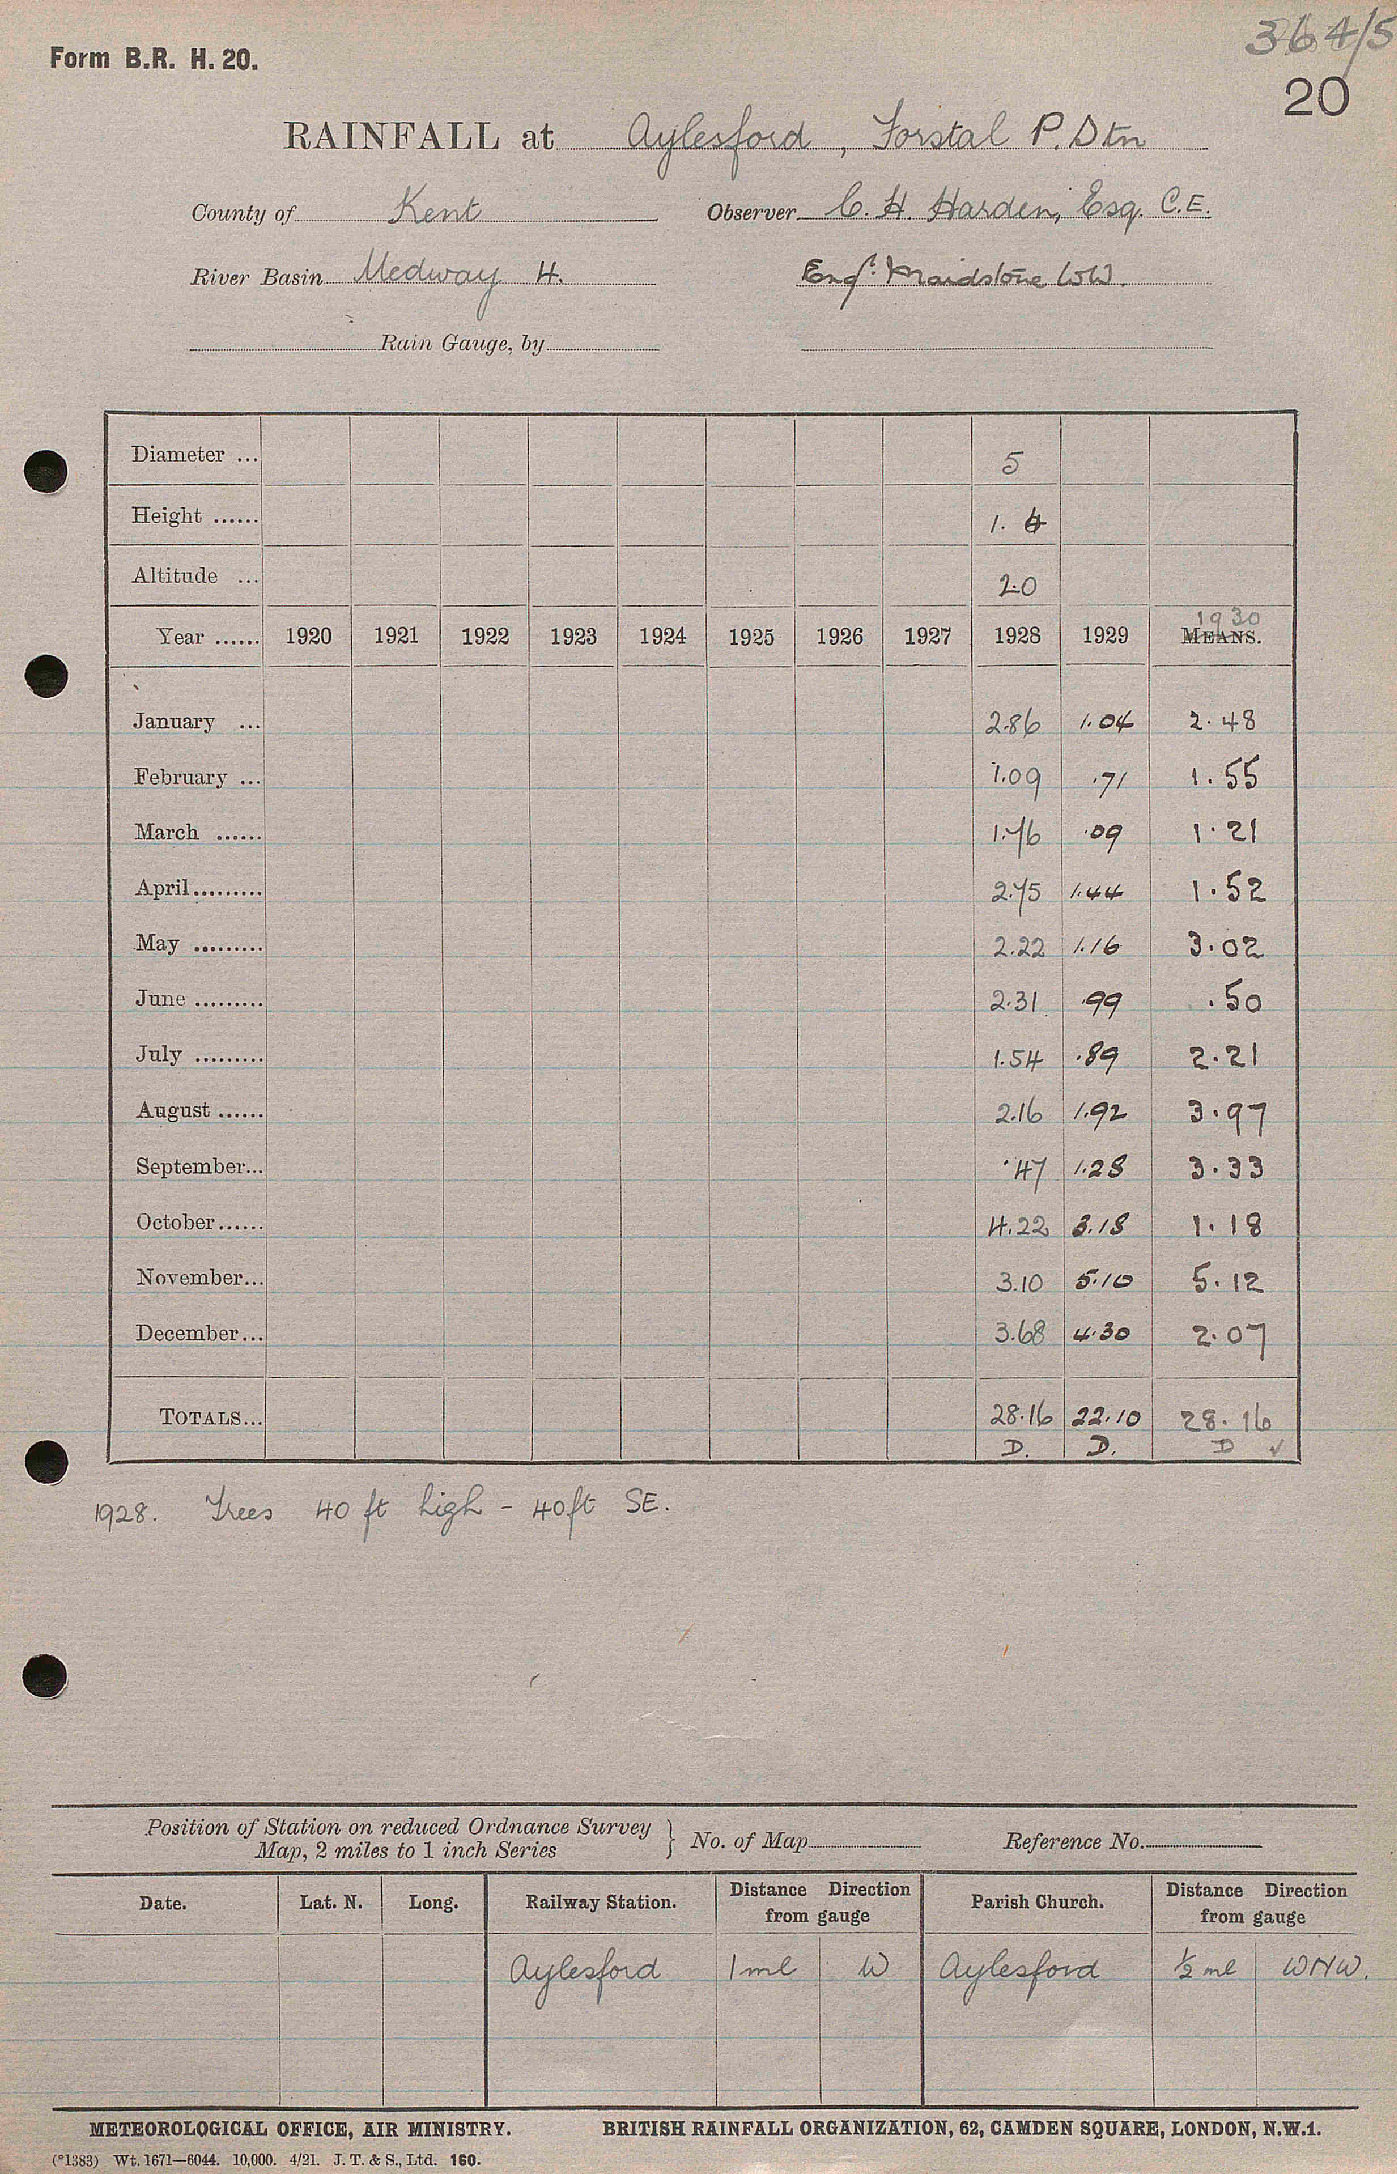 364/5
Form B.R. H. 20.
20
RAINFALL at Aylesford, Forstal P. Stn
County of Kent Observer C. H. Harden, Esq. C.E.
River Basin Medway H. Engr. Maidstone WW.
Rain Gauge, by
Diameter ... 5
Height ...... 1.
Altitude ... 20
1930
Year ...... 1920 1921 1922 1923 1924 1925 1926 1927 1928 1929 MEANS.
January ... 2.86 1.04 2.48
February ... 1.09 .71 1.55
March ...... 1.76 .09 1.21
April......... 2.75 1.44 1.52
May ......... 2.22 1.16 3.02
June ......... 2.31 .99 .50
July ......... 1.54 .89 2.21
August ...... 2.16 1.92 3.97
September... .47 1.28 3.33
October...... 4.22 3.18 1.18
November... 3.10 5.10 5.12
December... 3.68 4.30 2.07
TOTALS... 28.16 22.10 28.16
D. D. D ✓
1928. Trees 40 ft high - 40ft SE.
Position of Station on reduced Ordnance Survey
Map, 2 miles to 1 inch Series } No. of Map Reference No.
Date. Lat. N. Long. Railway Station. Distance Direction from gauge Parish Church. Distance Direction from gauge
Aylesford 1 ml W Aylesford ½ ml WNW.
METEOROLOGICAL OFFICE, AIR MINISTRY. BRITISH RAINFALL ORGANIZATION, 62, CAMDEN SQUARE, LONDON, N.W.1.
(*1383) Wt. 1671—6044. 10,000. 4/21. J. T. & S., Ltd. 160.